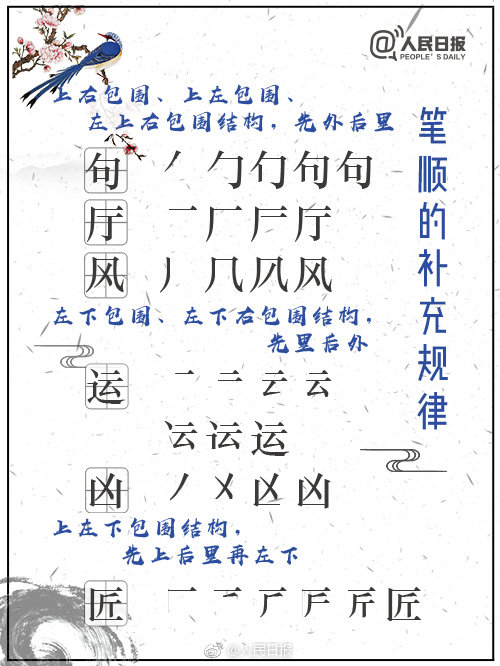 @人民日报
PEOPLE'S DAILY
笔顺的补充规律
上右包围、上左包围、
左上右包围结构，先外后里
句 ㇒ 勹 勹 句 句
厅 一 厂 厅
风 丿 几 风
左下包围、左下右包围结构，
先里后外
运 一 二 云 云
云 运 运
凶 ㇒ 㐅 凶 凶
上左下包围结构，
先上后里再左下
匠 一 匠
@人民日报